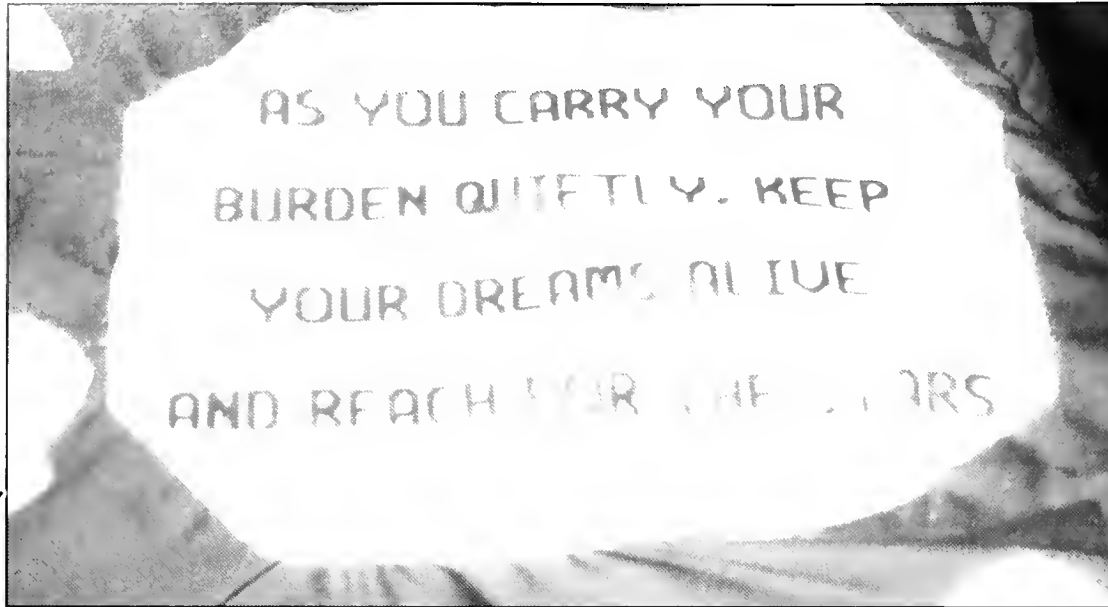 AS YOU CARRY YOUR
BURDEN QUIETLY, KEEP
YOUR DREAMS ALIVE
AND REACH FOR THE STARS